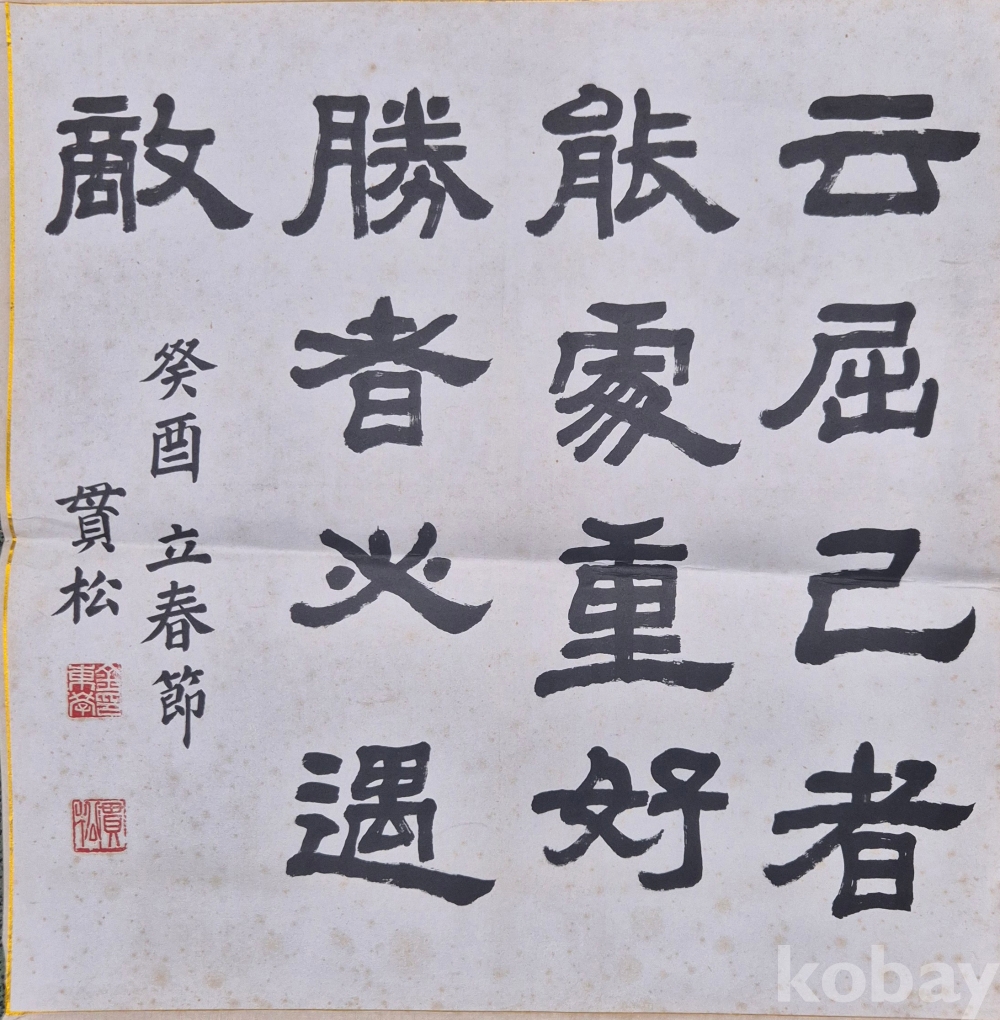 云屈己者
能處重好
勝者必遇
敵
癸酉 立春節
貫松
貫松
kobay